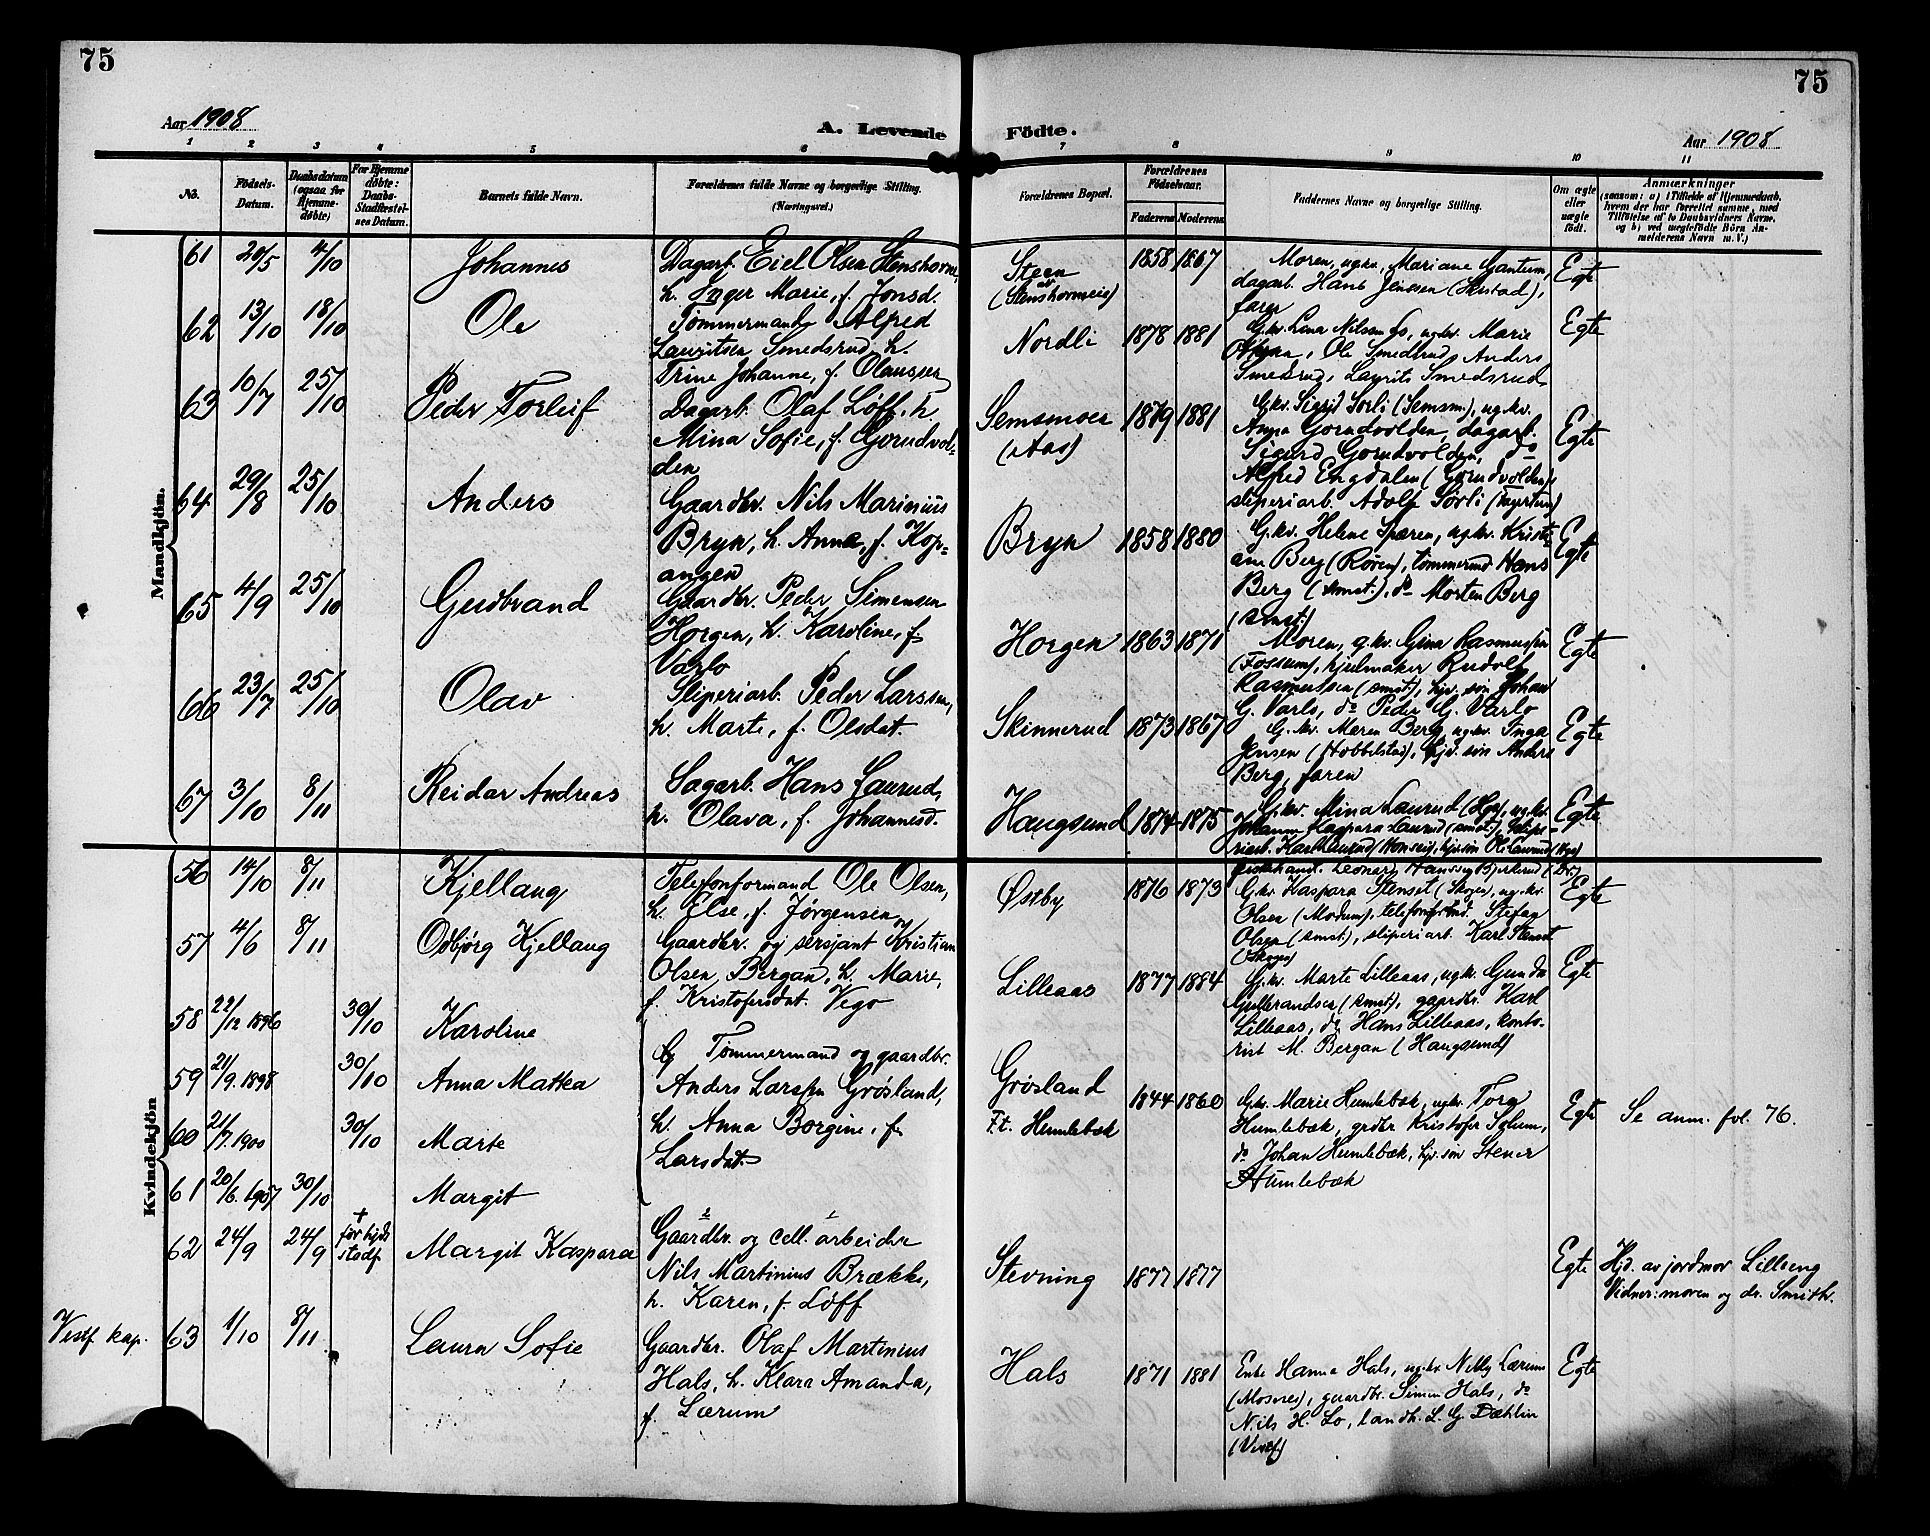 75
75
Aar 1908
A. Levende
Födte.
Aar 1908
1 2 3 4 5 6 7 8 9 10 11
No.
Födsels-
Datum.
Daabsdatum
(ogsaa for
Hjemme-
døbte)
For Hjemme
døbte:
Daabs-
Stadfæstel-
ses Datum.
Barnets fulde Navn.
Forældrenes fulde Navne og borgerlige Stilling.
(Næringsvei.)
Forældrenes Bopæl.
Forældrenes
Födselsaar.
Faderens
Moderens
Faddernes Navne og borgerlige Stilling.
Om ægte
eller
uægte
født.
Anmærkninger
(saasom: a) i Tilfælde af Hjemmedaab,
hvem der har forrettet samme, med
Tilføielse af to Daabsvidners Navne,
og b) ved uægtefødte Börn An-
melderens Navn m. V.)
Mandkjön.
61 20/5 4/10 Johannes
Dagarb. Eiel Olsen Stenshorne,
h. Inger Marie, f. Jonsd.
Steen
(Stenshorneie)
1858 1867
Moren, ugkv. Mariane Gantum,
dagarb. Hans Jensen
faren
Egte
62 13/10 18/10 Ole
Tømmermand Alfred
Lauritsen Smedsrud, h.
Trine Johanne, f. Olaussen
Nordli
1878 1881
Gkv. Lina Nilsen Lo, ugkv. Marie
Ole Smedsrud, Anders
Smedsrud, Laurits Smedsrud
Egte
63 10/7 25/10 Peder Torleif
Dagarb. Olaf Løff, h.
Mina Sofie, f. Gorudvol-
den
Semsmoen
(Aas)
1879 1881
Gkv. Sigrid Sørli (Semsm.), ugkv.
Anna Gorudvolden, dagarb.
Sigurd Gorudvolden, do
Alfred Engdalen (Gorudvolden),
sliperiarb. Adolf Sørli
Egte
64 29/8 25/10 Anders
Gaardbr. Nils Marinius
Bryn, h. Anna, f. Kop-
angen
Bryn
1858 1880
G.kv. Helene Spæren, ugkv. Kristi-
ane Berg (Røren), tømmermd Hans
Berg (smst.), do Morten Berg
(smst.)
Egte
65 4/9 25/10 Gudbrand
Gaardbr. Peder Simensen
Horgen, h. Karoline, f.
Varlo
Horgen
1863 1871
Moren, gkv. Gina Rasmussen
(Fossum), hjulmaker Rudolf
Rasmussen (smst.), hjv. søn Johan
G. Varlo, do Peder G. Varlo
Egte
66 23/7 25/10 Olav
Sliperiarb. Peder Larssen,
h. Marte, f. Olsdat.
Skinnerud
1873 1867
G.kv. Maren Berg, ugkv. Inga
Jensen (Hobbelstad), hjv. søn Anders
Berg, faren
Egte
67 3/10 8/11 Reidar Andreas
Sagarb. Hans Laurud,
h. Olava, f. Johannesd.
Haugsund
1874 1875
G.kv. Mina Laurud
Johanne Kaspara Laurud (smst.), slipe-
riarb. Karl Laurud
Egte
Kvindekjön
56 14/10 8/11 Kjellaug
Telefonformand Ole Olsen,
h. Else, f. Jørgensen
Østby
1876 1873
G.kv. Kaspara Stenset (Skogen), ugkv.
Olsen (Modum), telefonformd. Stefan
Olsen (smst.), sliperiarb. Karl Stenset
(Skogen)
Egte
57 4/6 8/11 Odbjørg Kjellaug
Gaardbr. og sersjant Kristian
Olsen Bergan, h. Marie,
f. Kristofersdat. Vego
Lilleaas
1877 1884
G.kv. Marte Lilleaas, ugk. Gunda
Gulbrandsen (smst.), gaardbr. Karl
Lilleaas, do Hans Lilleaas, konto-
rist M. Bergan (Haugsund)
Egte
58 22/12 1896 30/10 Karoline
59 21/9. 1898 30/10 Anna Mathea
60 21/7. 1900 30/10 Marte
61 20/6. 1907 30/10 Margit
Tømmermand og gaardbr.
Anders Larssen Grøsland,
h. Anna Borgine, f.
Larsdat.
Grøsland
F.t. Humlebæk
1844 1860
Gkv. Marie Humlebæk, ugkv. Tora
Humlebæk, grdbr Kristofer Solum,
do Johan Humlebæk, hjv. søn Stener
Humlebæk
Egte
Se anm. fol. 76.
62 24/9 24/9
+
før hjd.
stadf
Margit Kaspara
Gaardbr. og cell. arbeider
Nils Martinius Brække,
h. Karen, f. Løff
Stevning
1877 1877
Egte
Hjd. av jordmor Lilleeng
Vidner: moren og dr. Smith.
Vestf kap. 63 1/10 8/11 Laura Sofie
Gaardbr. Olaf Martinius
Hals, h. Klara Amanda,
f. Lærum
Hals
1871 1881
Enke Hanna Hals, ugkv Nelly Lærum
(Mosnes), gaardbr. Simen Hals, do
Nils H. Lo, landh. L. G. Dæhlin
(Vestf)
Egte